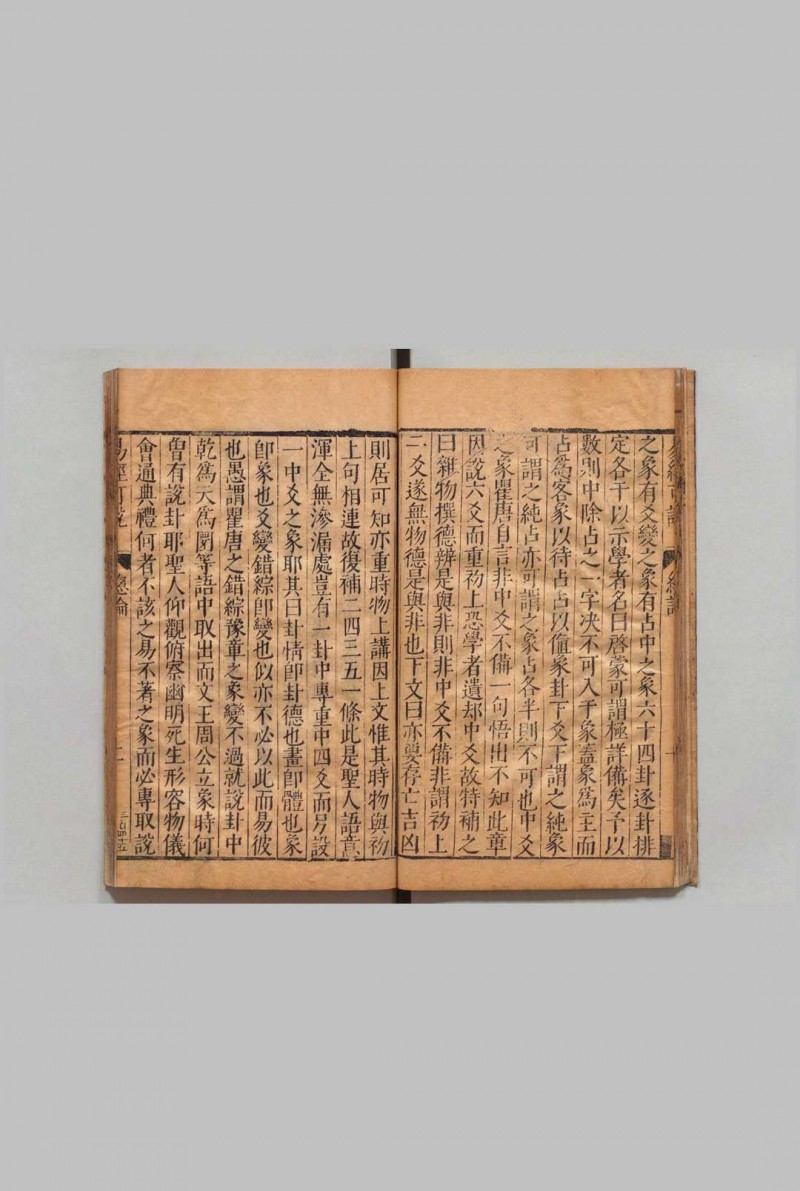 之象有爻變之象有占中之象六十四卦逐卦排
定各于以示學者名曰啓蒙可謂極詳備矣予以
數則中除占之一字决不可入于象蓋象爲主而
占爲客象以待占占以值象卦下爻下謂之純象
可謂之純占亦可謂之象占各半則不可也中爻
之象瞿唐自言非中爻不備一句悟出不知此章
因說六爻而重初上恐學者遺却中爻故特補之
曰雜物撰德辨是與非則非中爻不備非謂初上
二爻遂無物德是與非也下文曰亦要存亡吉凶
則居可知亦重時物上講因上文惟其時物與初
上句相連故復補二四三五一條此是聖人語意
渾全無滲漏處豈有一卦中專重中四爻而另設
一中爻之象耶其曰卦情卽卦德也畫卽體也象
卽象也爻變錯綜卽變也似亦不必以此而易彼
也愚謂瞿唐之錯綜豫章之象變不過就說卦中
乾爲天爲圜等語中取出而文王周公立象時何
曾有說卦耶聖人仰觀俯察幽明死生形容物儀
會通典禮何者不該之易不著之象而必專取說
易經可說 總論 二